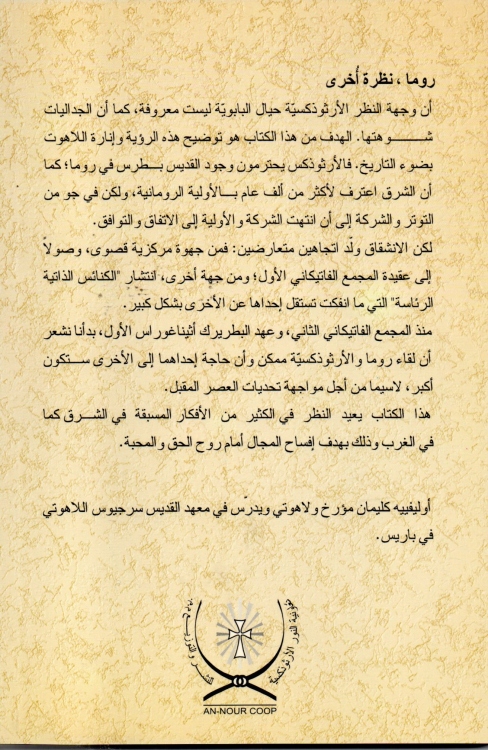 روما ، نظرة أُخرى
أن وجهة النظر الأرثوذكسيّة حيال البابويّة ليست معروفة، كما أن الجداليات
شــوهتها. الهدف من هذا الكتاب هو توضيح هذه الرؤية وإنارة اللاهوت
بضوء التاريخ. فالأرثوذكس يحترمون وجود القديس بـطرس في روما؛ كما
أن الشرق اعترف لأكثر من ألف عام بـالأولية الرومانية، ولكن في جو من
التوتر والشركة إلى أن انتهت الشركة والأولية إلى الاتفاق والتوافق.
لكن الانشقاق ولّد اتجاهين متعارضين: فمن جهوة مركزية قصوى، وصولاً
إلى عقيدة المجمع الفاتيكاني الأول؛ ومن جهة أخرى، انتشار "الكنائس الذاتية
الرئاسة" التي ما انفكت تستقل إحداها عن الأخرى بشكل كبير.
منذ المجمع الفاتيكاني الثاني، وعهد البطريرك أثيناغوراس الأول، بدأنا نشعر
أن لقاء روما والأرثوذكسيّة ممكن وأن حاجة إحداهما إلى الأخرى ستكون
أكبر، لاسيما من أجل مواجهة تحديات العصر المقبل.
هذا الكتاب يعيد النظر في الكثير من الأفكار المسبقة في الشرق كما
في الغرب وذلك بهدف إفساح المجال أمام روح الحق والمحبة.
أوليفييه كليمان مؤرخ ولاهوتي ويدرّس في معهد القديس سرجيوس اللاهوتي
في باريس.
تعاونية النور الأرثوذكسيّة
للنشر والتوزيع
AN-NOUR COOP